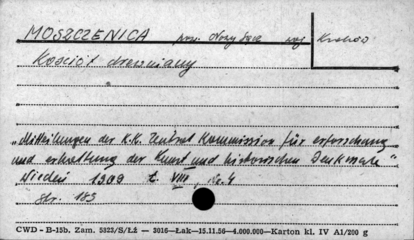 MOSZCZENICA pow. Nowy Sącz woj. Kraków
Kościół drewniany
"Mitteilungen der K.K. Zentral Kommission für erforschung
und erhaltung der Kunst und historischen Denkmale"
Wiedeń 1909 t. VIII, Nr. 4
str. 183
CWD - B-15b, Zam. 5323/S/Łż — 3016—Łak—15.11.56—4.000.000—Karton kl. IV A1/200 g